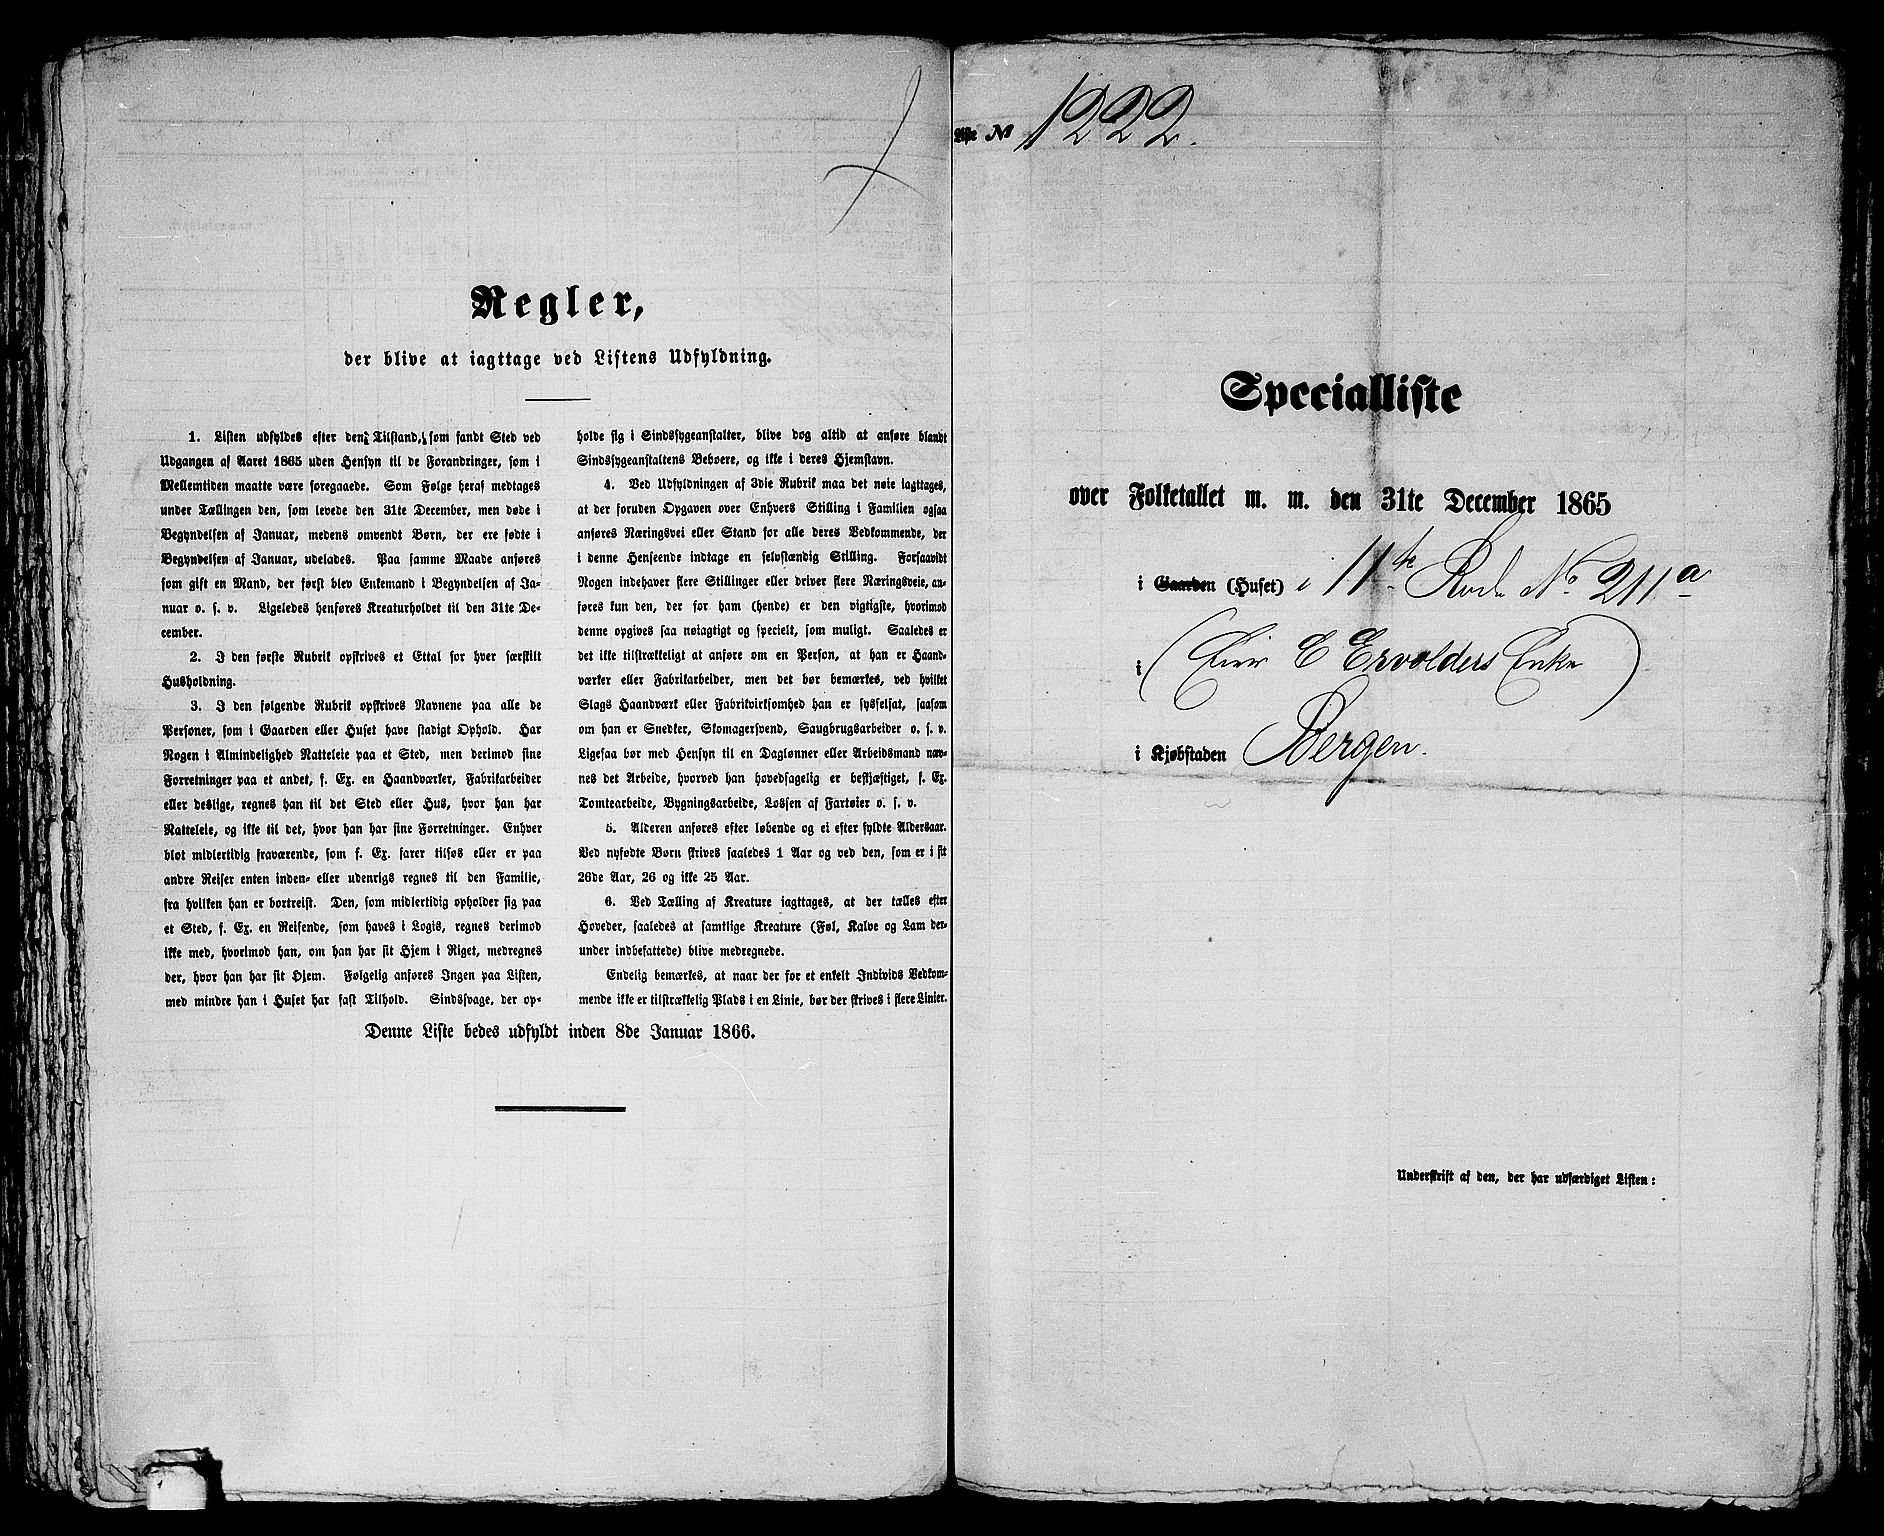 Regler,
der blive at iagttage ved Listens Udfyldning.
1. Listen udfyldes efter den Tilstand, som fandt Sted ved
Udgangen af Aaret 1865 uden Hensyn til de Forandringer, som i
Mellemtiden maatte være foregaaede. Som Følge heraf medtages
under Tællingen den, som levede den 31te December, men døde i
Begyndelsen af Januar, medens omvendt Børn, der ere fødte i
Begyndelsen af Januar, udelades. Paa samme Maade anføres
som gift en Mand, der først blev Enkemand i Begyndelsen af Ja-
nuar o. s. v. Ligeledes henføres Kreaturholdet til den 31te De-
cember.
2. I den første Rubrik opskrives et Ettal for hver særskilt
Husholdning.
3. I den følgende Rubrik opskrives Navnene paa alle de
Personer, som i Gaarden eller Huset have stadigt Ophold. Har
Nogen i Almindelighed Natteleie paa et Sted, men derimod sine
Forretninger paa et andet, f. Ex. en Haandværker, Fabrikarbeider
eller deslige, regnes han til det Sted eller Hus, hvor han har
Natteleie, og ikke til det, hvor han har sine Forretninger. Enhver
blot midlertidig fraværende, som f. Ex. farer tilsøs eller er paa
andre Reiser enten inden- eller udenrigs regnes til den Familie,
fra hvilken han er bortreist. Den, som midlertidig opholder sig paa
et Sted, f. Ex. en Reisende, som haves i Logis, regnes derimod
ikke med, hvorimod han, om han har sit Hjem i Riget, medregnes
der, hvor han har sit Hjem. Følgelig anføres Ingen paa Listen,
med mindre han i Huset har fast Tilhold. Sindssvage, der op-
holde sig i Sindssygeanstalter, blive dog altid at anføre blandt
Sindssygeanstaltens Beboere, og ikke i deres Hjemstavn.
4. Ved Udfyldningen af 3die Rubrik maa det nøie iagttages,
at der foruden Opgaven over Enhvers Stilling i Familien ogsaa
anføres Næringsvei eller Stand for alle deres Vedkommende, der
i denne Henseende indtage en selvstændig Stilling. Forsaavidt
Nogen indehaver flere Stillinger eller driver flere Næringsveie, an-
føres kun den, der for ham (hende) er den vigtigste, hvorimod
denne opgives saa nøiagtigt og specielt, som muligt. Saaledes er
det ikke tilstrækkeligt at anføre om en Person, at han er Haand-
værker eller Fabrikarbeider, men det bør bemærkes, ved hvilket
Slags Haandværk eller Fabrikvirksomhed han er sysselsat, saasom
om han er Snedker, Skomagersvend, Saugbrugsarbeider o. s. v.
Ligesaa bør med Hensyn til en Daglønner eller Arbeidsmand næv-
nes det Arbeide, hvorved han hovedsagelig er beskjæftiget, f. Ex.
Tomtearbeide, Bygningsarbeide, Lossen af Fartøier o. s. v.
5. Alderen anføres efter løbende og ei efter fyldte Aldersaar.
Ved nyfødte Børn skrives saaledes 1 Aar og ved den, som er i sit
26de Aar, 26 og ikke 25 Aar.
6. Ved Tælling af Kreature iagttages, at der tælles efter
Hoveder, saaledes at samtlige Kreature (Føl, Kalve og Lam der-
under indbefattede) blive medregnede.
Endelig bemærkes, at naar der for et enkelt Individs Vedkom-
mende ikke er tilstrækkelig Plads i en Linie, bør der skrives i flere Linier.
Denne Liste bedes udfyldt inden 8de Januar 1866.
Liste № 1222.
Specialliste
over Folketallet m. m. den 31te December 1865
i Gaarden (Huset) i 11te Rode No. 211a
i (Eier E Ervolders Enke)
i Kjøbstaden Bergen.
Underskrift af den, der har udfærdiget Listen: